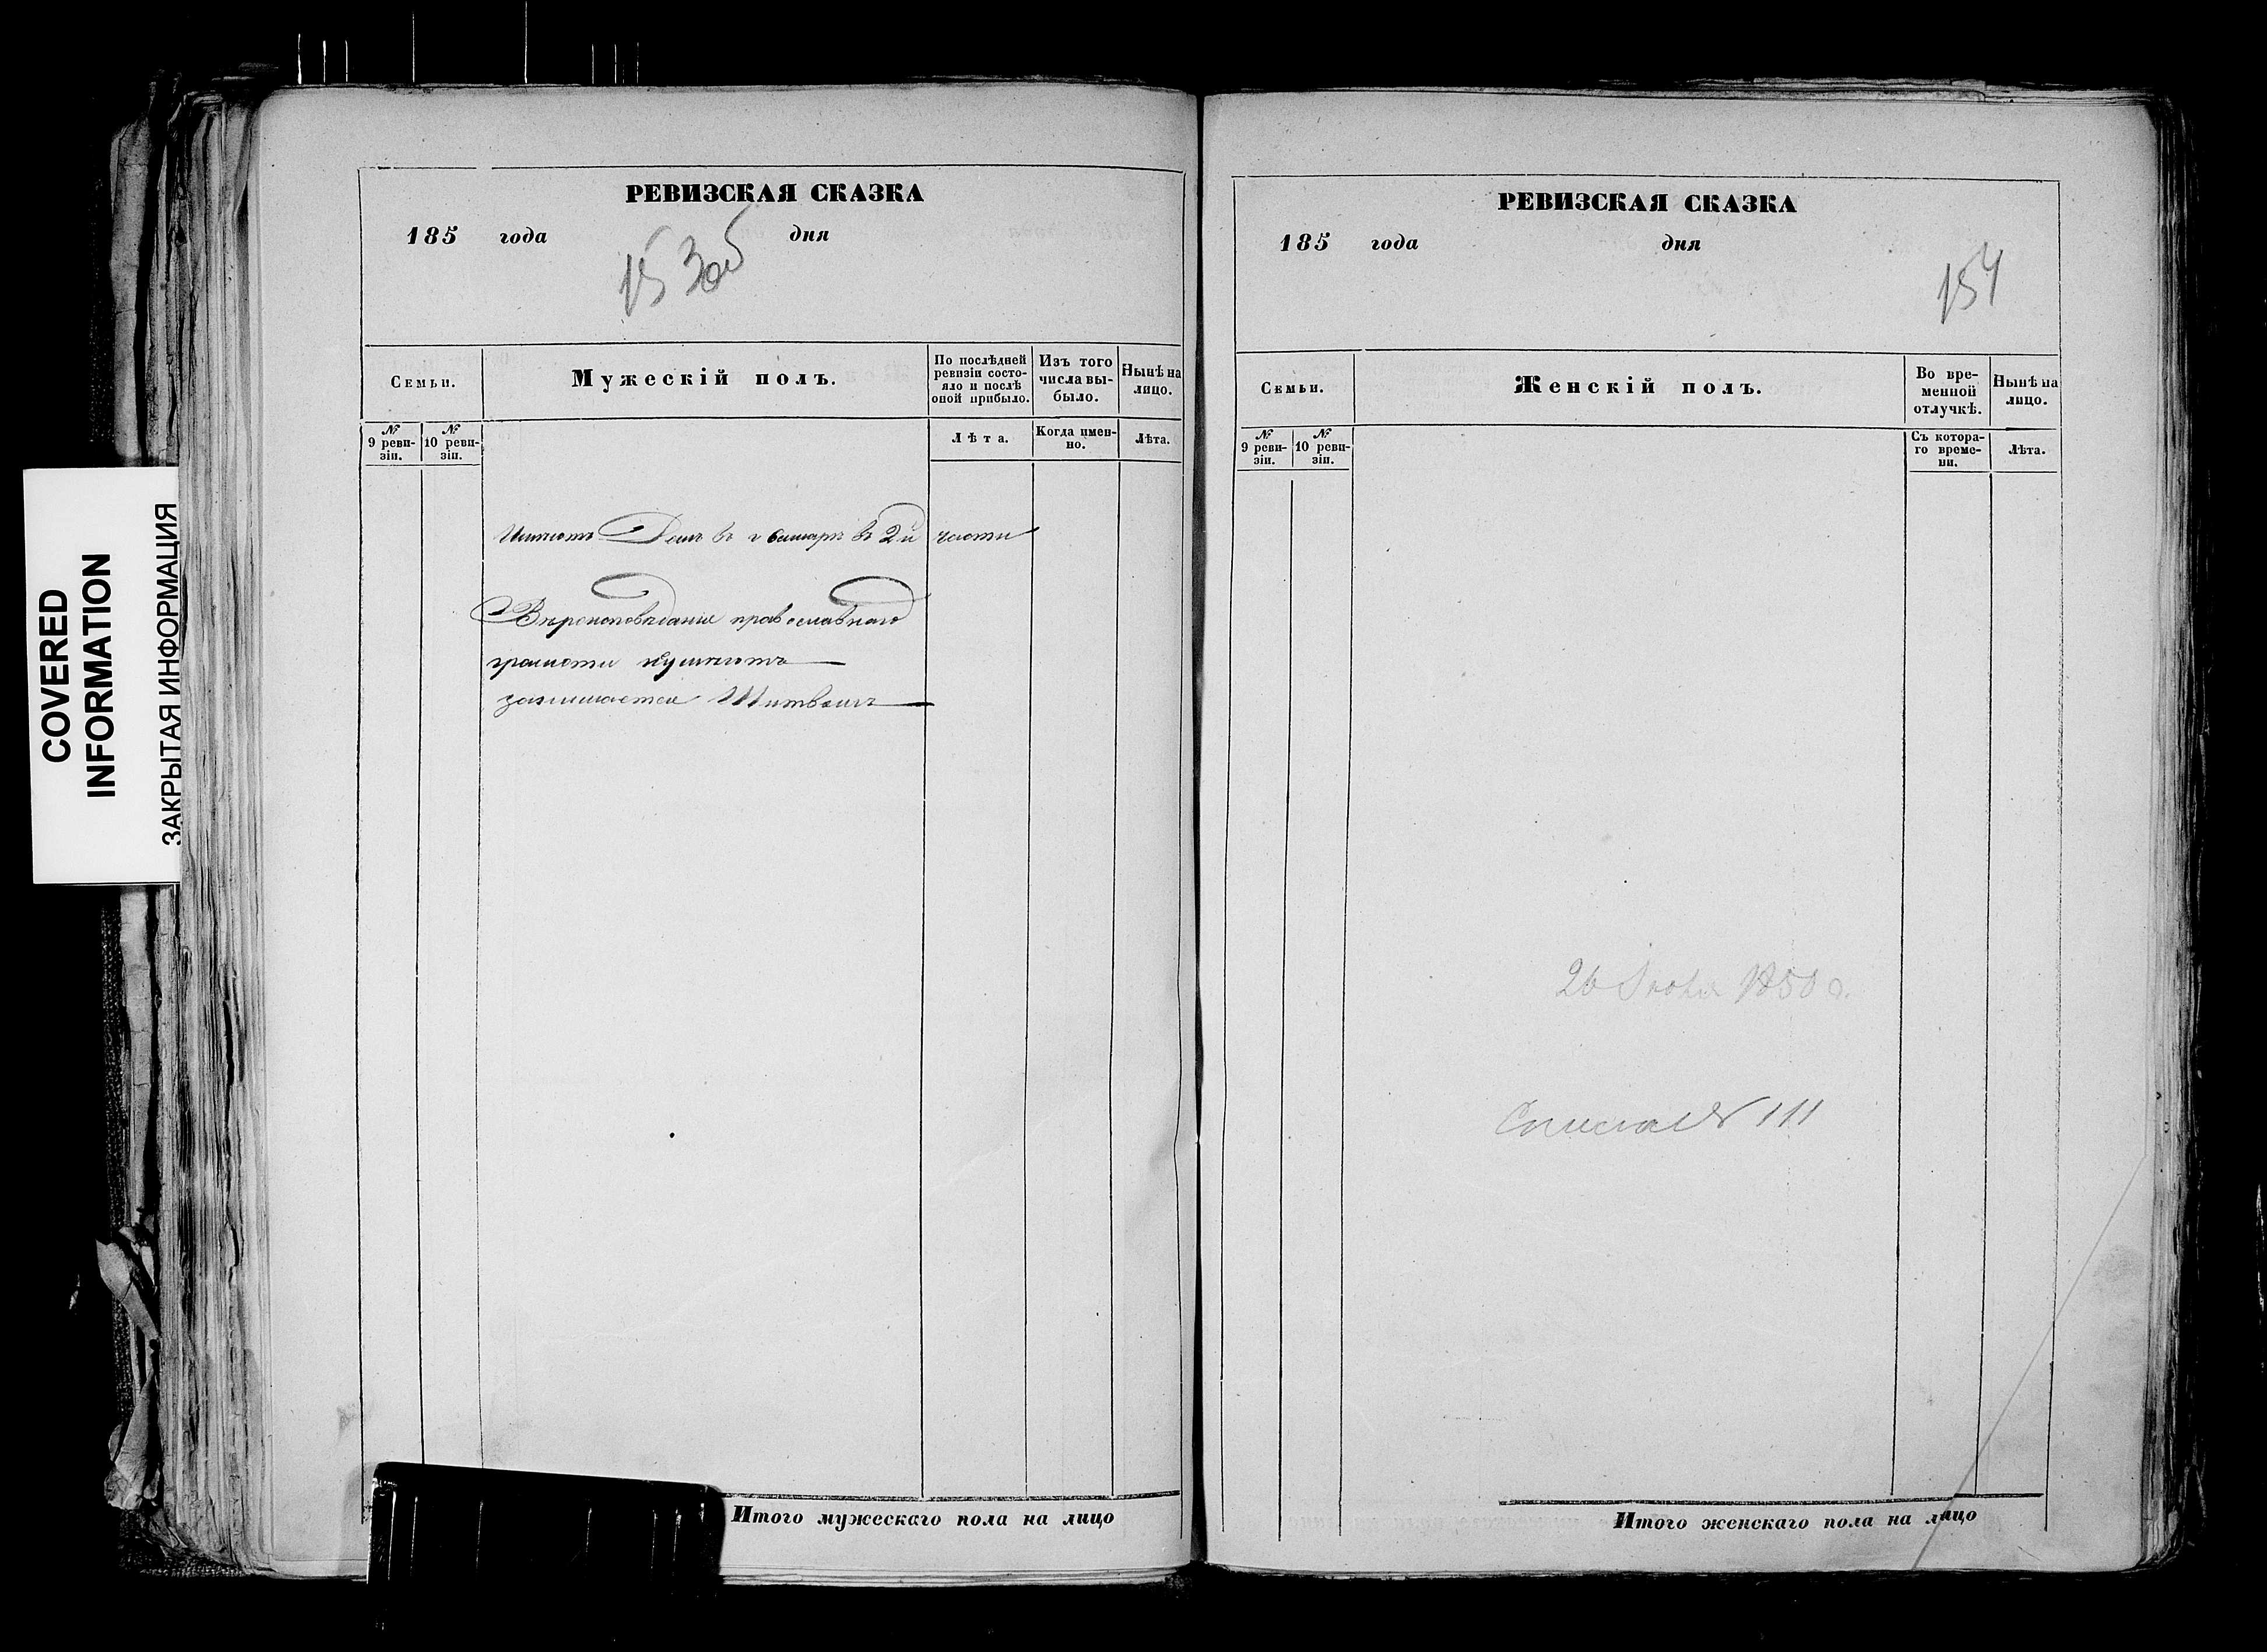 COVERED
INFORMATION
ЗАКРЫТАЯ ИНФОРМАЦИЯ
РЕВИЗСКАЯ СКАЗКА
185 года дня
153об
Семьи.
Мужескій полъ.
По послѣдней ревизіи состояло и послѣ оной прибыло.
Изъ того числа выбыло.
Нынѣ на лицо.
№ 9 ревизіи.
№ 10 ревизіи.
Лѣта.
Когда именно.
Лѣта.
Имѣетъ Домъ въ г Самарѣ въ 2й части
Вѣроисповѣданія православнаго
грамоти
занимается
Итого мужескаго пола на лицо
РЕВИЗСКАЯ СКАЗКА
185 года дня
154
Семьи.
Женскій полъ.
Во временной отлучкѣ.
Нынѣ на лицо.
№ 9 ревизіи.
№ 10 ревизіи.
Съ котораго времени.
Лѣта.
26 1850 г.
№ 111
Итого женскаго пола на лицо